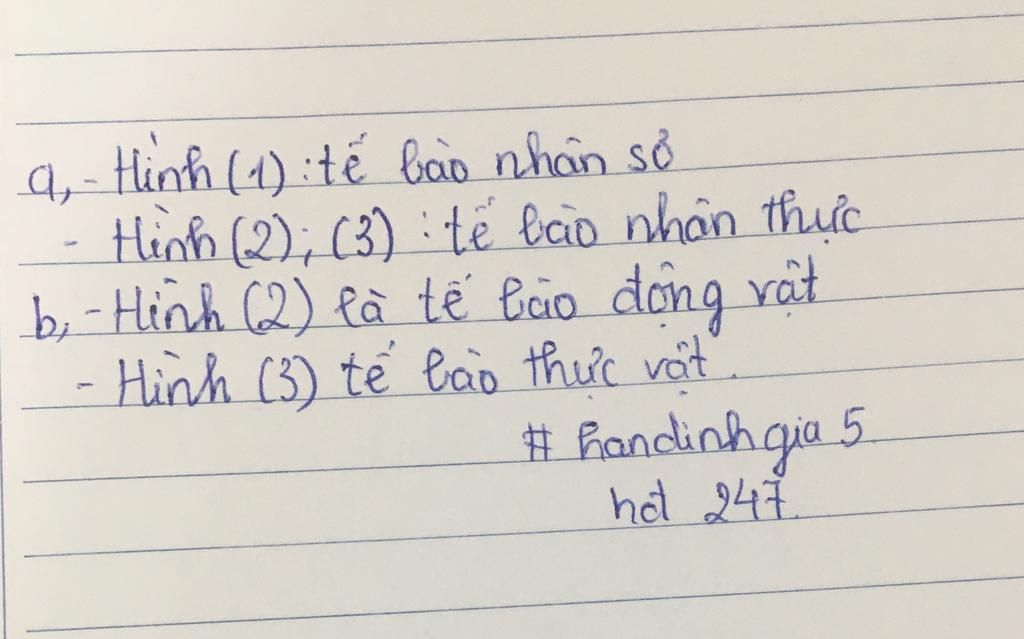 a, - Hình (1) : tế bào nhân sơ
- Hình (2) ; (3) : tế bào nhân thực
b, - Hình (2) là tế bào động vật
- Hình (3) tế bào thực vật.
# handinhgia 5
hd 247.